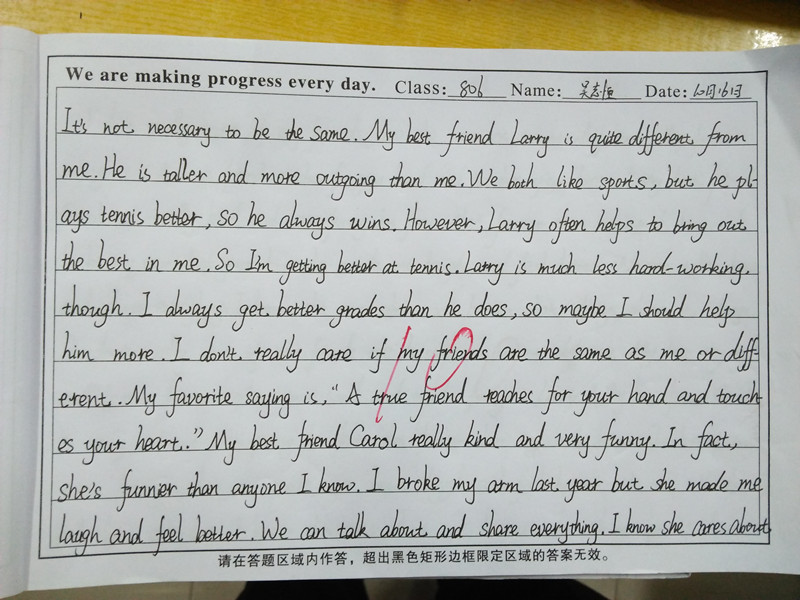 We are making progress every day. Class: 806 Name: 吴志恒 Date: 10月16日
It's not necessary to be the same. My best friend Larry is quite different from
me. He is taller and more outgoing than me. We both like sports, but he pl-
ays tennis better, so he always wins. However, Larry often helps to bring out
the best in me. So I'm getting better at tennis. Larry is much less hard-working.
though. I always get better grades than he does, so maybe I should help
him more. I don't really care if my friends are the same as me or diff-
erent. My favorite saying is, "A true friend reaches for your hand and touch-
es your heart." My best friend Carol really kind and very funny. In fact,
she's funnier than anyone I know. I broke my arm last year but she made me
laugh and feel better. We can talk about and share everything. I know she cares about
请在答题区域内作答，超出黑色矩形边框限定区域的答案无效。